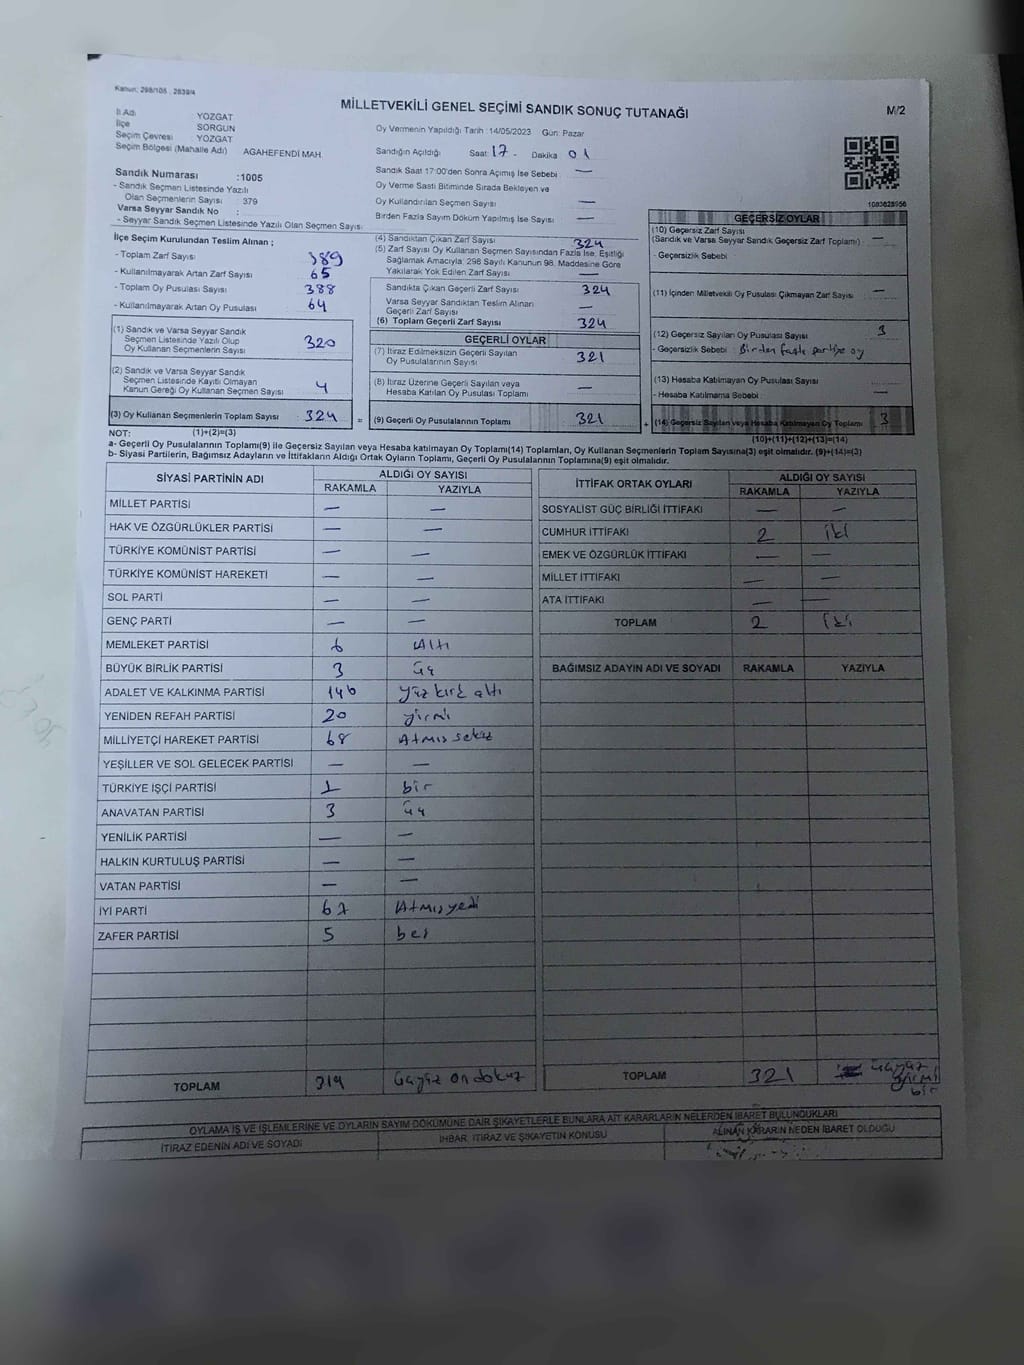 Kanun: 298/105 , 2839/4
MİLLETVEKİLİ GENEL SEÇİMİ SANDIK SONUÇ TUTANAĞI
M/2
İl Adı YOZGAT
İlçe SORGUN
Seçim Çevresi YOZGAT
Seçim Bölgesi (Mahalle Adı) AGAHEFENDİ MAH.
Oy Vermenin Yapıldığı Tarih :14/05/2023 Gün: Pazar
Sandığın Açıldığı Saat: 17 - Dakika 01
Sandık Saat 17:00'den Sonra Açımış İse Sebebi : —
Oy Verme Saati Bitiminde Sırada Bekleyen ve
Oy Kullandırılan Seçmen Sayısı : —
Birden Fazla Sayım Döküm Yapılmış İse Sayısı : —
Sandık Numarası :1005
- Sandık Seçmen Listesinde Yazılı
Olan Seçmenlerin Sayısı : 379
Varsa Seyyar Sandık No :
- Seyyar Sandık Seçmen Listesinde Yazılı Olan Seçmen Sayısı
İlçe Seçim Kurulundan Teslim Alınan ;
- Toplam Zarf Sayısı : 389
- Kullanılmayarak Artan Zarf Sayısı : 65
- Toplam Oy Pusulası Sayısı : 388
- Kullanılmayarak Artan Oy Pusulası : 64
(1) Sandık ve Varsa Seyyar Sandık
Seçmen Listesinde Yazılı Olup
Oy Kullanan Seçmenlerin Sayısı : 320
(2) Sandık ve Varsa Seyyar Sandık
Seçmen Listesinde Kayıtlı Olmayan
Kanun Gereği Oy Kullanan Seçmen Sayısı : 4
(3) Oy Kullanan Seçmenlerin Toplam Sayısı : 324
(4) Sandıktan Çıkan Zarf Sayısı : 324
(5) Zarf Sayısı Oy Kullanan Seçmen Sayısından Fazla İse, Eşitliği
Sağlamak Amacıyla; 298 Sayılı Kanunun 98. Maddesine Göre
Yakılarak Yok Edilen Zarf Sayısı : —
Sandıkta Çıkan Geçerli Zarf Sayısı : 324
Varsa Seyyar Sandıktan Teslim Alınan
Geçerli Zarf Sayısı : —
(6) Toplam Geçerli Zarf Sayısı : 324
GEÇERLİ OYLAR
(7) İtiraz Edilmeksizin Geçerli Sayılan
Oy Pusulalarının Sayısı : 321
(8) İtiraz Üzerine Geçerli Sayılan veya
Hesaba Katılan Oy Pusulası Toplamı : —
= (9) Geçerli Oy Pusulalarının Toplamı : 321 +
1083628956
GEÇERSİZ OYLAR
(10) Geçersiz Zarf Sayısı
(Sandık ve Varsa Seyyar Sandık Geçersiz Zarf Toplamı) : —
- Geçersizlik Sebebi :
(11) İçinden Milletvekili Oy Pusulası Çıkmayan Zarf Sayısı : —
(12) Geçersiz Sayılan Oy Pusulası Sayısı : 3
- Geçersizlik Sebebi : Birden fazla partiye oy
(13) Hesaba Katılmayan Oy Pusulası Sayısı :
- Hesaba Katılmama Sebebi : —
(14) Geçersiz Sayılan veya Hesaba Katılmayan Oy Toplamı : 3
NOT: (1)+(2)=(3) (10)+(11)+(12)+(13)=(14)
a- Geçerli Oy Pusulalarının Toplamı(9) ile Geçersiz Sayılan veya Hesaba katılmayan Oy Toplamı(14) Toplamları, Oy Kullanan Seçmenlerin Toplam Sayısına(3) eşit olmalıdır. (9)+(14)=(3)
b- Siyasi Partilerin, Bağımsız Adayların ve İttifakların Aldığı Ortak Oyların Toplamı, Geçerli Oy Pusulalarının Toplamına(9) eşit olmalıdır.
SİYASİ PARTİNİN ADI ALDIĞI OY SAYISI
RAKAMLA YAZIYLA
MİLLET PARTİSİ — —
HAK VE ÖZGÜRLÜKLER PARTİSİ — —
TÜRKİYE KOMÜNİST PARTİSİ — —
TÜRKİYE KOMÜNİST HAREKETİ — —
SOL PARTİ — —
GENÇ PARTİ — —
MEMLEKET PARTİSİ 6 Altı
BÜYÜK BİRLİK PARTİSİ 3 üç
ADALET VE KALKINMA PARTİSİ 146 yüz kırk altı
YENİDEN REFAH PARTİSİ 20 yirmi
MİLLİYETÇİ HAREKET PARTİSİ 68 Atmış sekiz
YEŞİLLER VE SOL GELECEK PARTİSİ — —
TÜRKİYE İŞÇİ PARTİSİ 1 bir
ANAVATAN PARTİSİ 3 üç
YENİLİK PARTİSİ — —
HALKIN KURTULUŞ PARTİSİ — —
VATAN PARTİSİ — —
İYİ PARTİ 67 Atmış yedi
ZAFER PARTİSİ 5 beş
TOPLAM 319 üçyüz on dokuz
İTTİFAK ORTAK OYLARI ALDIĞI OY SAYISI
RAKAMLA YAZIYLA
SOSYALİST GÜÇ BİRLİĞİ İTTİFAKI — —
CUMHUR İTTİFAKI 2 iki
EMEK VE ÖZGÜRLÜK İTTİFAKI — —
MİLLET İTTİFAKI — —
ATA İTTİFAKI — —
TOPLAM 2 iki
BAĞIMSIZ ADAYIN ADI VE SOYADI RAKAMLA YAZIYLA
TOPLAM 321 üçyüz
yirmi
bir
OYLAMA İŞ VE İŞLEMLERİNE VE OYLARIN SAYIM DÖKÜMÜNE DAİR ŞİKAYETLERLE BUNLARA AİT KARARLARIN NELERDEN İBARET BULUNDUKLARI
İTİRAZ EDENİN ADI VE SOYADI İHBAR, İTİRAZ VE ŞİKAYETİN KONUSU ALINAN KARARIN NEDEN İBARET OLDUĞU